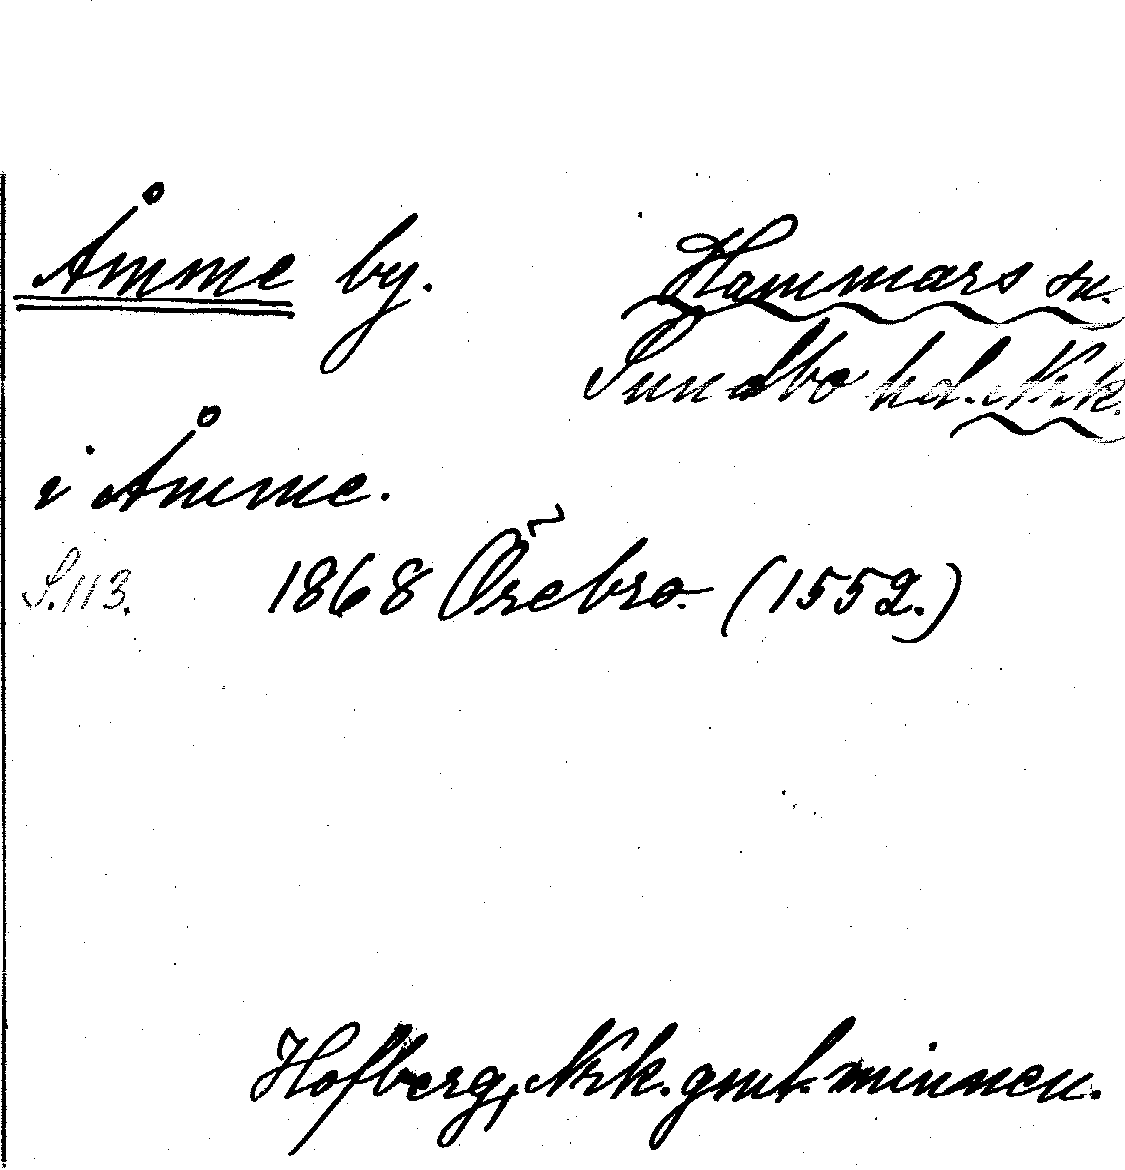 Åmme by. Hammars sn.
Sundbo hd. Nrk.
i Åmme.
S. 113. 1868 Örebro. (1552.)
Hofberg, Nrk. gml. minnen.